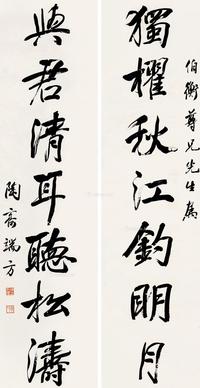 伯衡尊兄先生属
獨櫂秋江釣明月
與君清耳聽松濤
陶齋端方